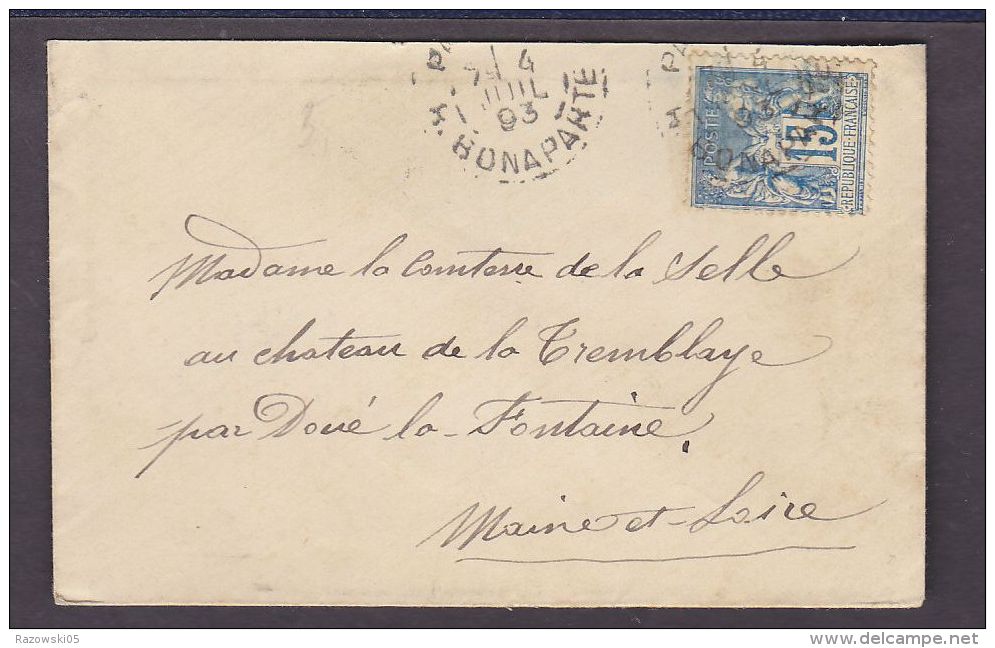 7E 4
JUIL
93
R. BONAPARTE
POSTES
15
REPUBLIQUE FRANÇAISE
Madame la Comtesse de la Selle
au chateau de la Tremblaye
par Doué la-Fontaine.
Maine-et-Loire
Razowski05
www.delcampe.net